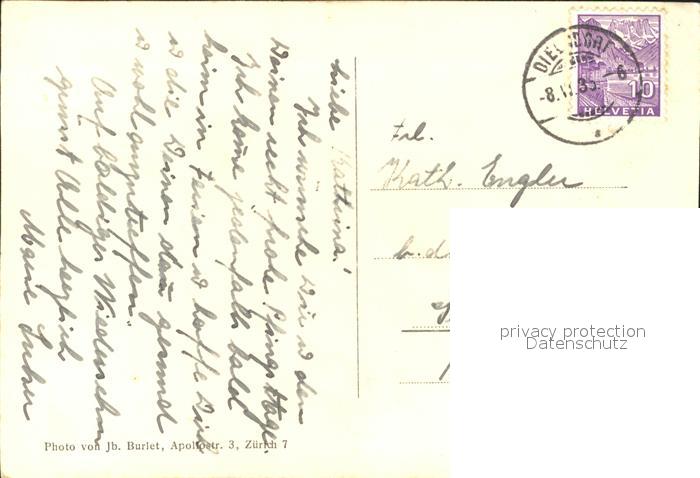 Liebe Kathrina!
Ich wünsche Dir u den
Deinen recht frohe Pfingsttage.
Ich komme jedenfalls bald
heim in Ferien u hoffe Dich
u die Deinen dann gesund
u wohl anzutreffen.
Auf baldiges Wiedersehn
grüsst Alle herzlich
Marie
Photo von Jb. Burlet, Apollostr. 3, Zürich 7
DIELSDORF
-8.VI.35.-6
10
HELVETIA
Frl.
Kath. Engler
b. d.
privacy protection
Datenschutz